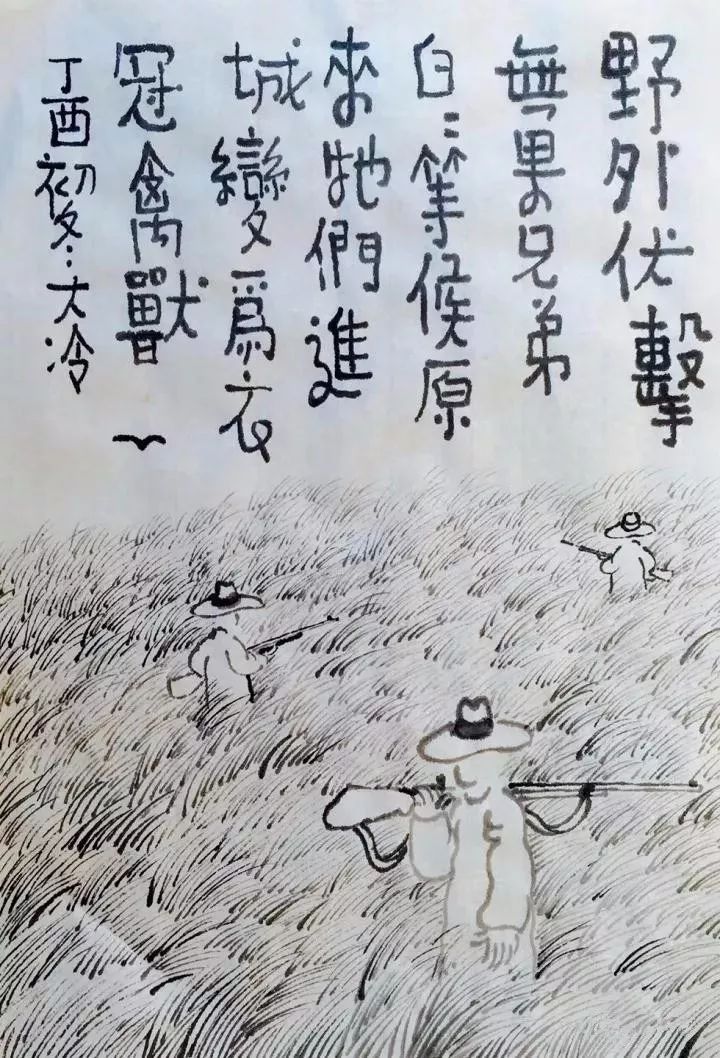 野外伏擊
無果兄弟
白〻等候原
來牠們進
城變爲衣
冠禽獸
丁酉初冬·大冷